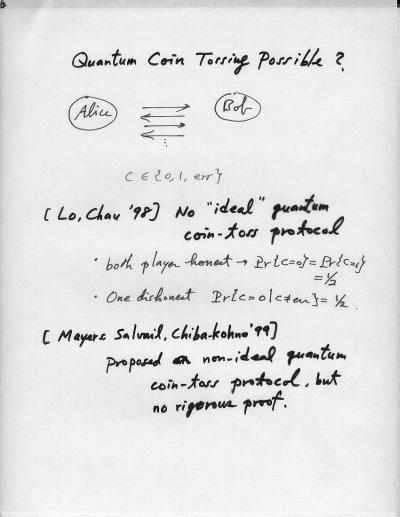 Quantum Coin Tossing Possible ?
Alice Bob
C ∈ {0, 1, err}
[ Lo, Chau '98] No "ideal" quantum
coin-toss protocol
• both player honest → Pr{C=0} = Pr{C=1}
= 1/2
• One dishonest Pr{C=0|C≠err} = 1/2.
[ Mayers Salvail, Chiba-Kohno '99]
Proposed a non-ideal quantum
coin-toss protocol, but
no rigorous proof.